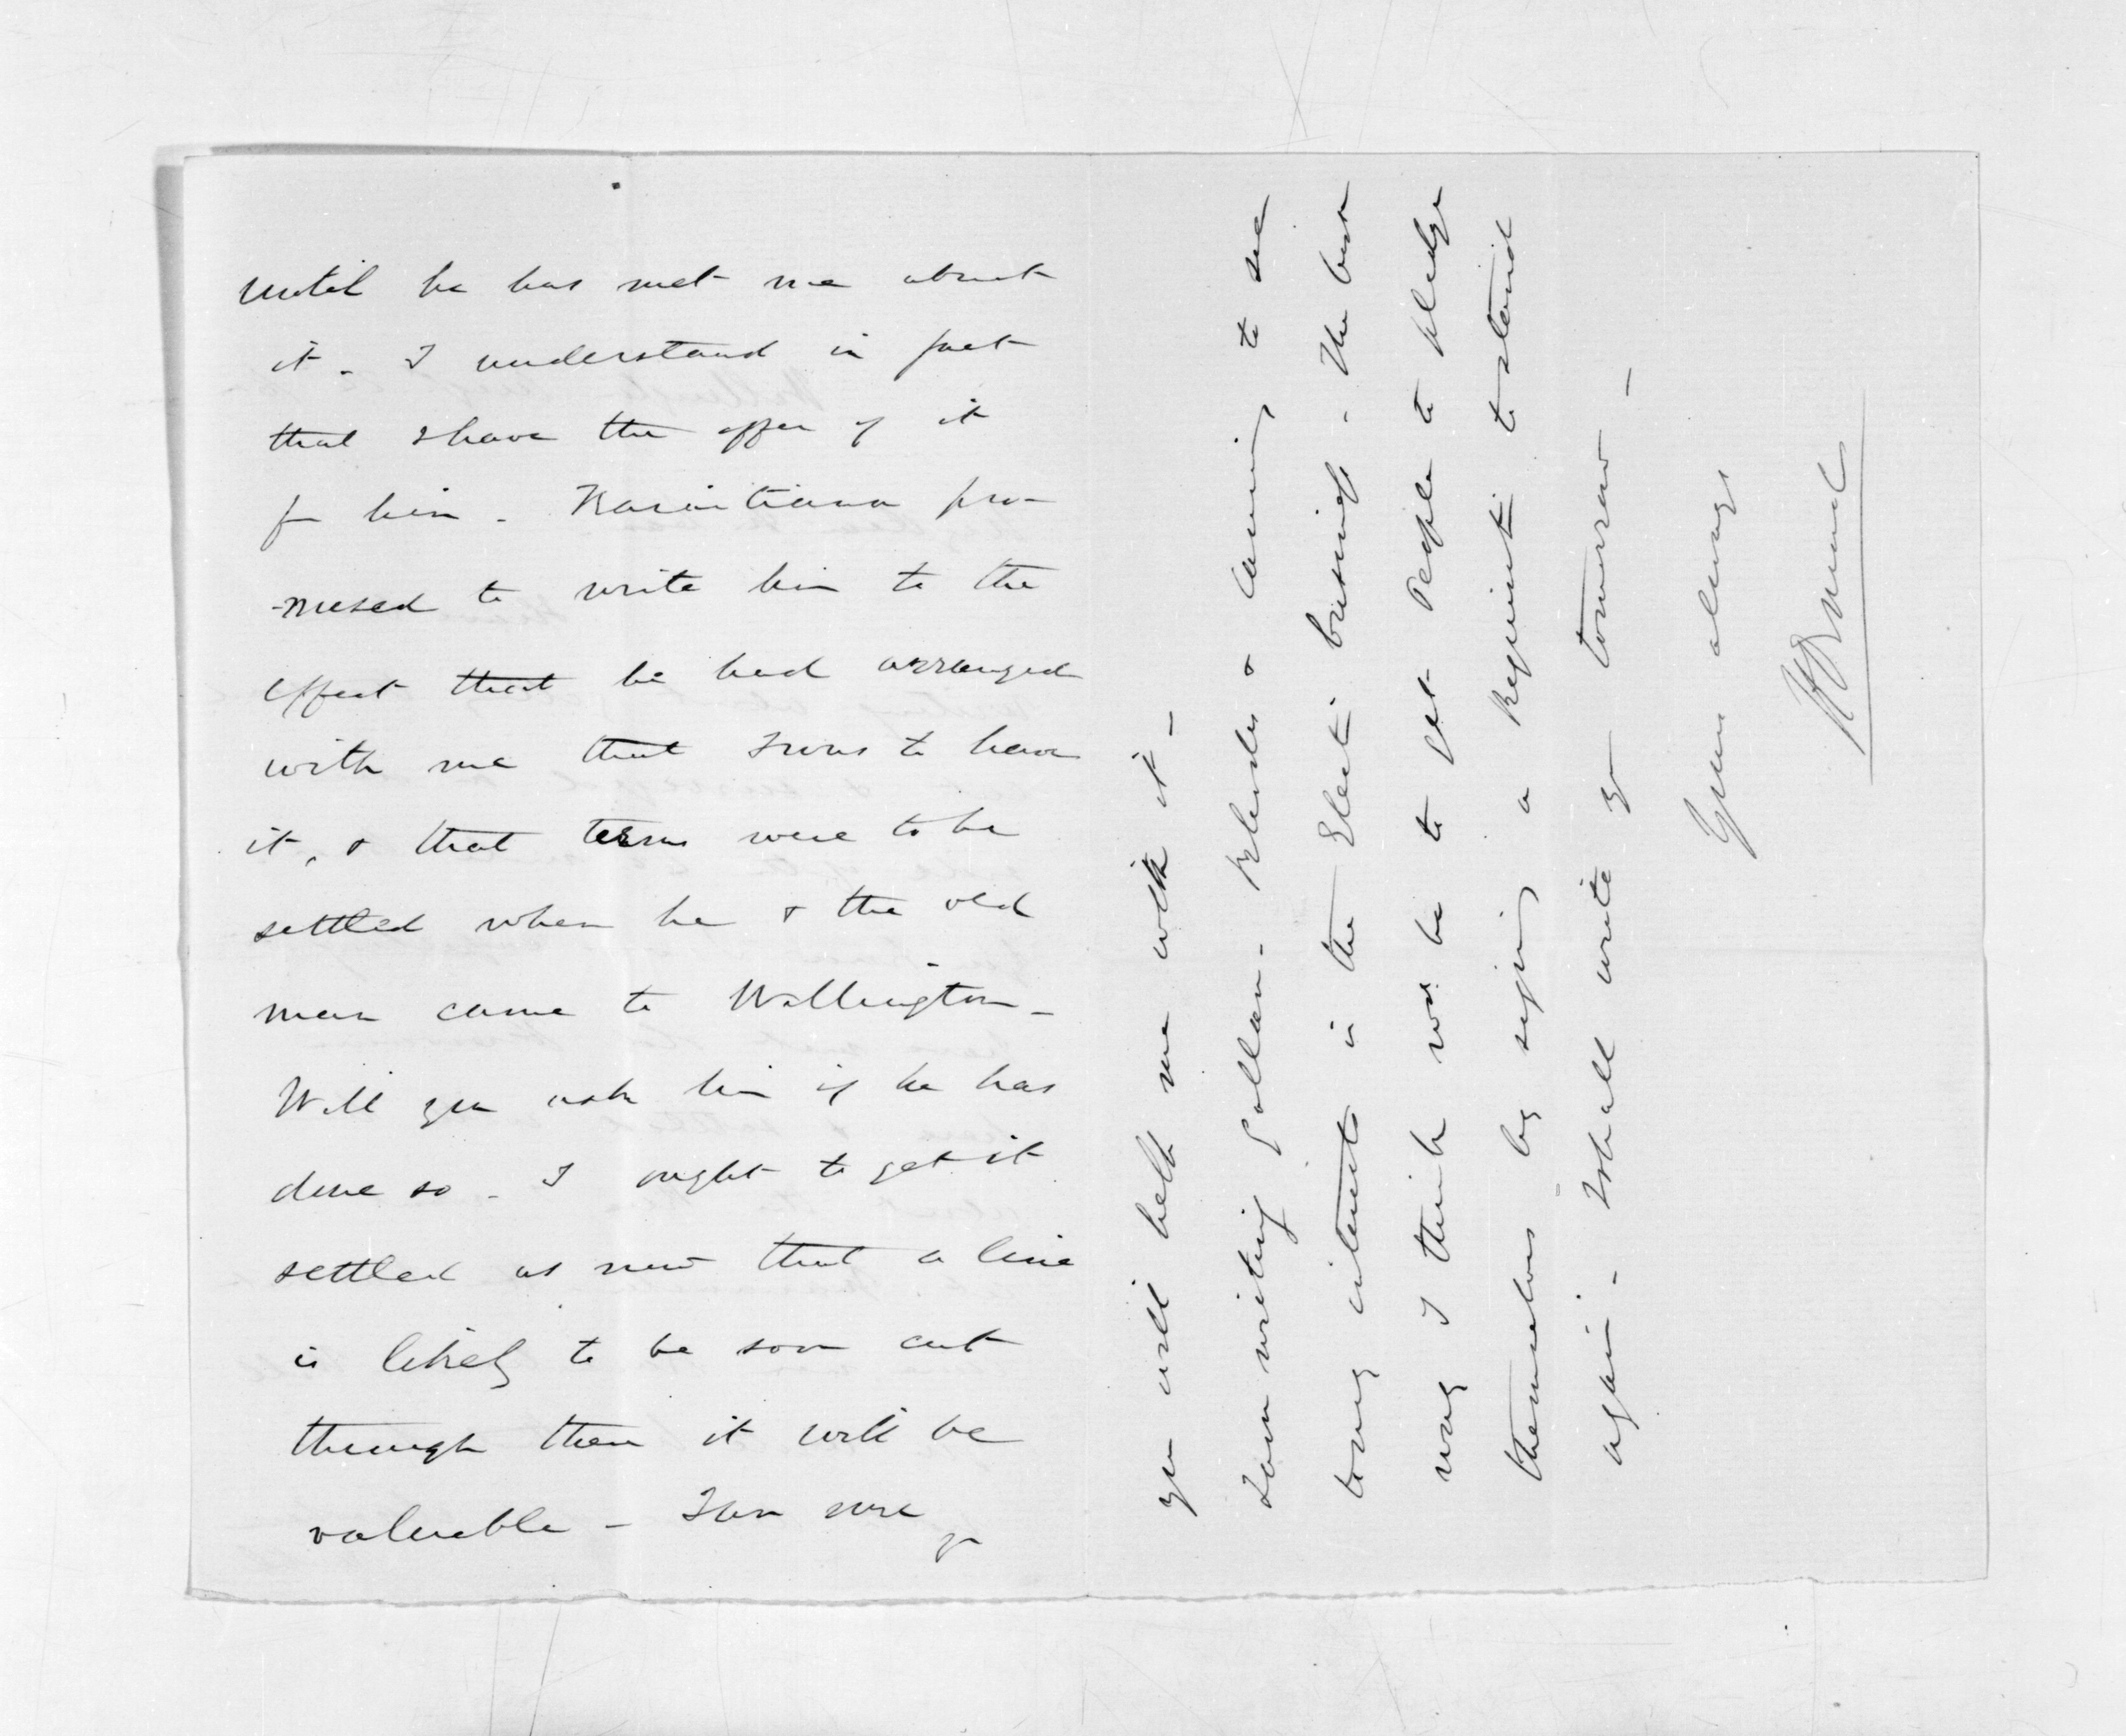 until he has met me about
it. I understand in fact
that I have the offer of it
fm him. Karaitiana pro-
-mised to write him to the
effect that he had arranged
with me that I was to have
it, & that terms were to be
settled when he & the old
man came to Wellington_
Will you ask him if he has
done so _ I ought to get it
settled as now that a line
is likely to be soon cut
through then it will be
valuable _ I am sure
yu
you will help me with it _
I am writing Gollan - Rhodes & Canning to see
Toney interests in the Electn. business - The best
way I think wd. be to get People to pledge
themselves by signing a Requisitn. to stand
again - I shall write yu tomorrow _
Yours always